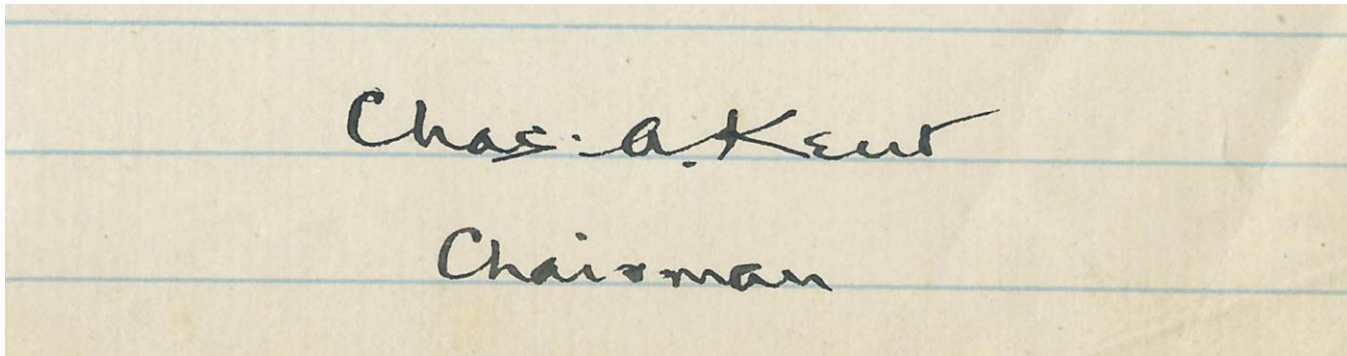 Chas. A. Kent
Chairman